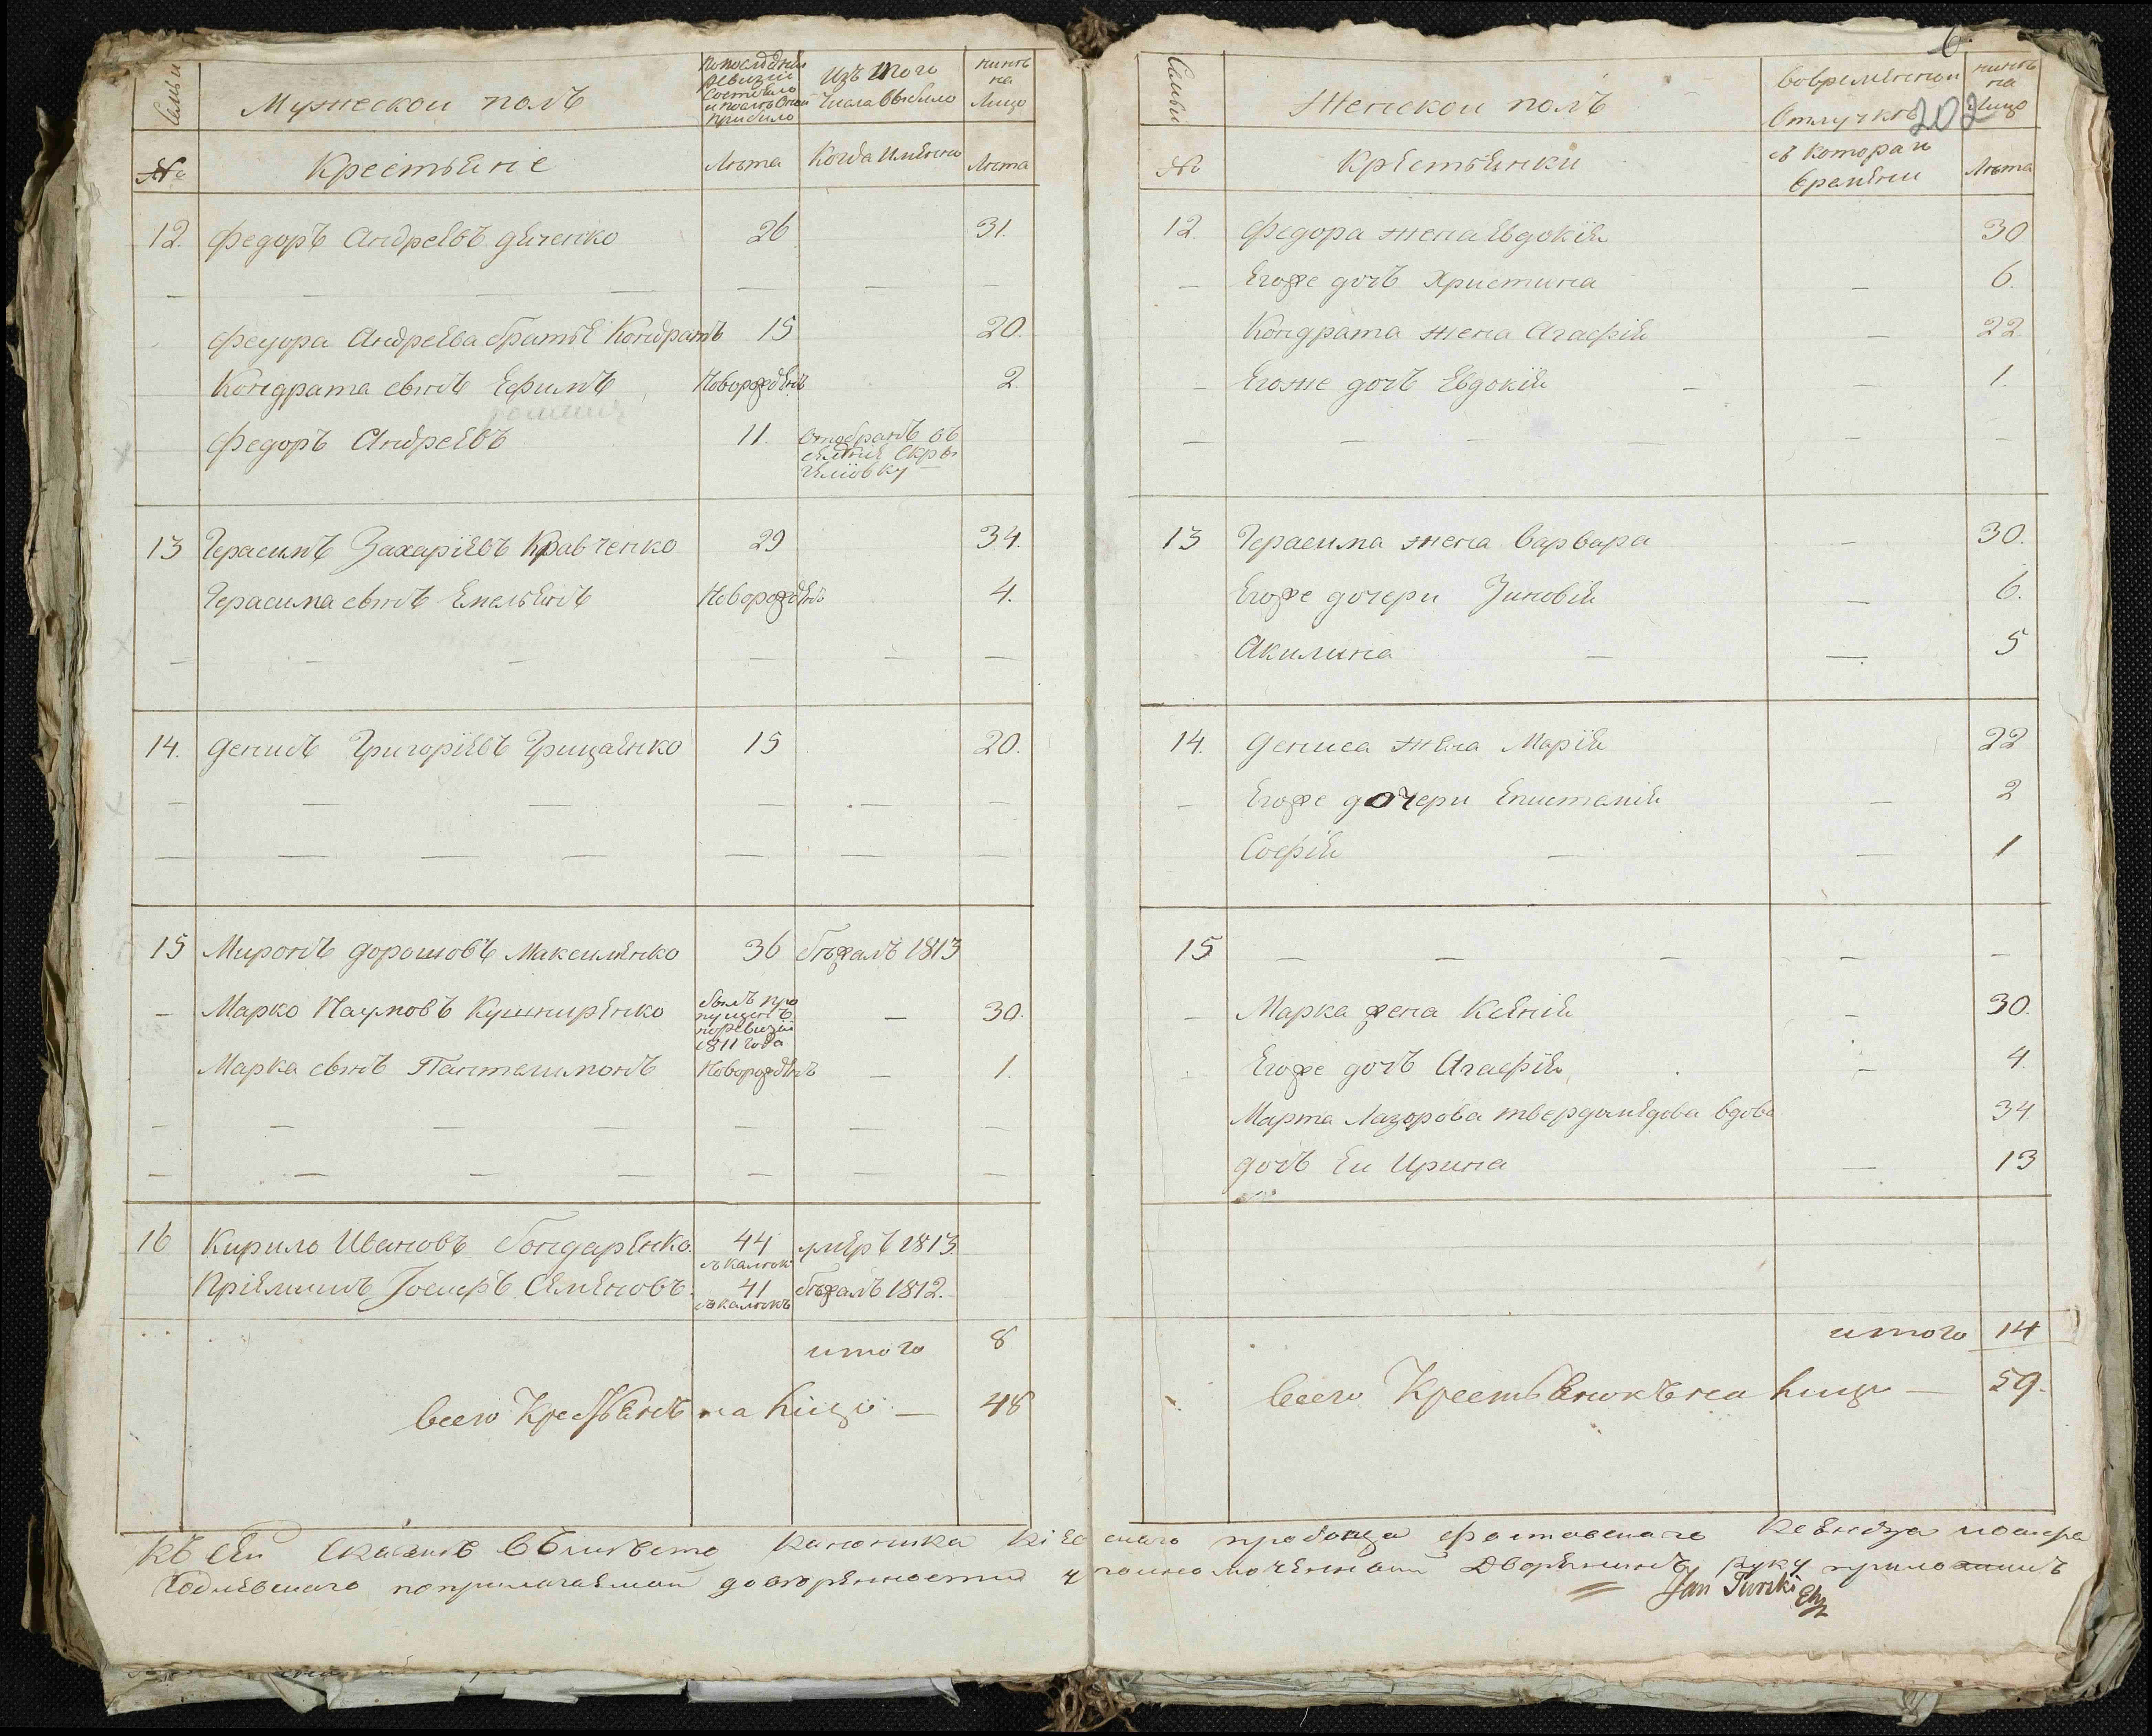 Семьи
Мужескои полъ
Попоследнеи ревизіи состояло и послѣ онои прибыло
Изъ того числа выбыло
нинѣ на лицо
№
Крестьяне
Лѣта
Когда именно
Лѣта
12. Федоръ Андреевъ Дяченко 26 31.
Федора Андреева братье Кондратъ 15 20.
Кондрата сынъ Ефимъ Новорожденъ 2.
Федоръ Андреевъ 11. Отобранъ въ
селение Скры
гелювку
13 Герасимъ Захаріевъ Кравченко 29 34.
Герасима сынъ Емельянъ Новорожденъ 4.
14. Денисъ Григоріевъ Грицаенко 15 20.
15 Миронъ Дорошовъ Максименко 36 бѣжалъ 1813
Марко Наумовъ Кушниренко былъ про
пущенъ
поревизіи
1811 года 30.
Марка сынъ Пантелимонъ Новорожденъ 1.
16 Кирило Ивановъ Бондаренко. 44 умеръ 1813.
Пріемишъ Іосифъ Семеновъ. 41 бѣжалъ 1812.
итого 8
Всего Крестьянъ на лицо — 48
6.
202
Семьи
Женскои полъ
Вовременнои Отлучкѣ
нинѣ на лицо
№
Крестьянки
съ котораго времени
Лѣта
12. Федора жена Евдокія 30
Егоже дочъ Христина 6.
Кондрата жена Агафія 22
Егоже дочъ Евдокія 1.
13 Герасима жена Варвара 30.
Егоже дочери Зиновія 6.
Акилина 5
14. Дениса жена Марія 22
Егоже дочери Епистемія 2
Софія 1
15
Марка жена Ксенія 30.
Егоже дочъ Агафія 4.
Марта Лазорова Твердомедова вдова 34.
дочъ Еи Ирина 13
итого 14
Всего Крестьянокъ на лицо — 59.
Къ сеи сказкѣ Вмѣсто каноника Кіевского пробоща Фастовскаго Ксендза Иосифа
по прилагаемои доверенности уполномоченнои Дворянинъ руку приложилъ
Jan Turski